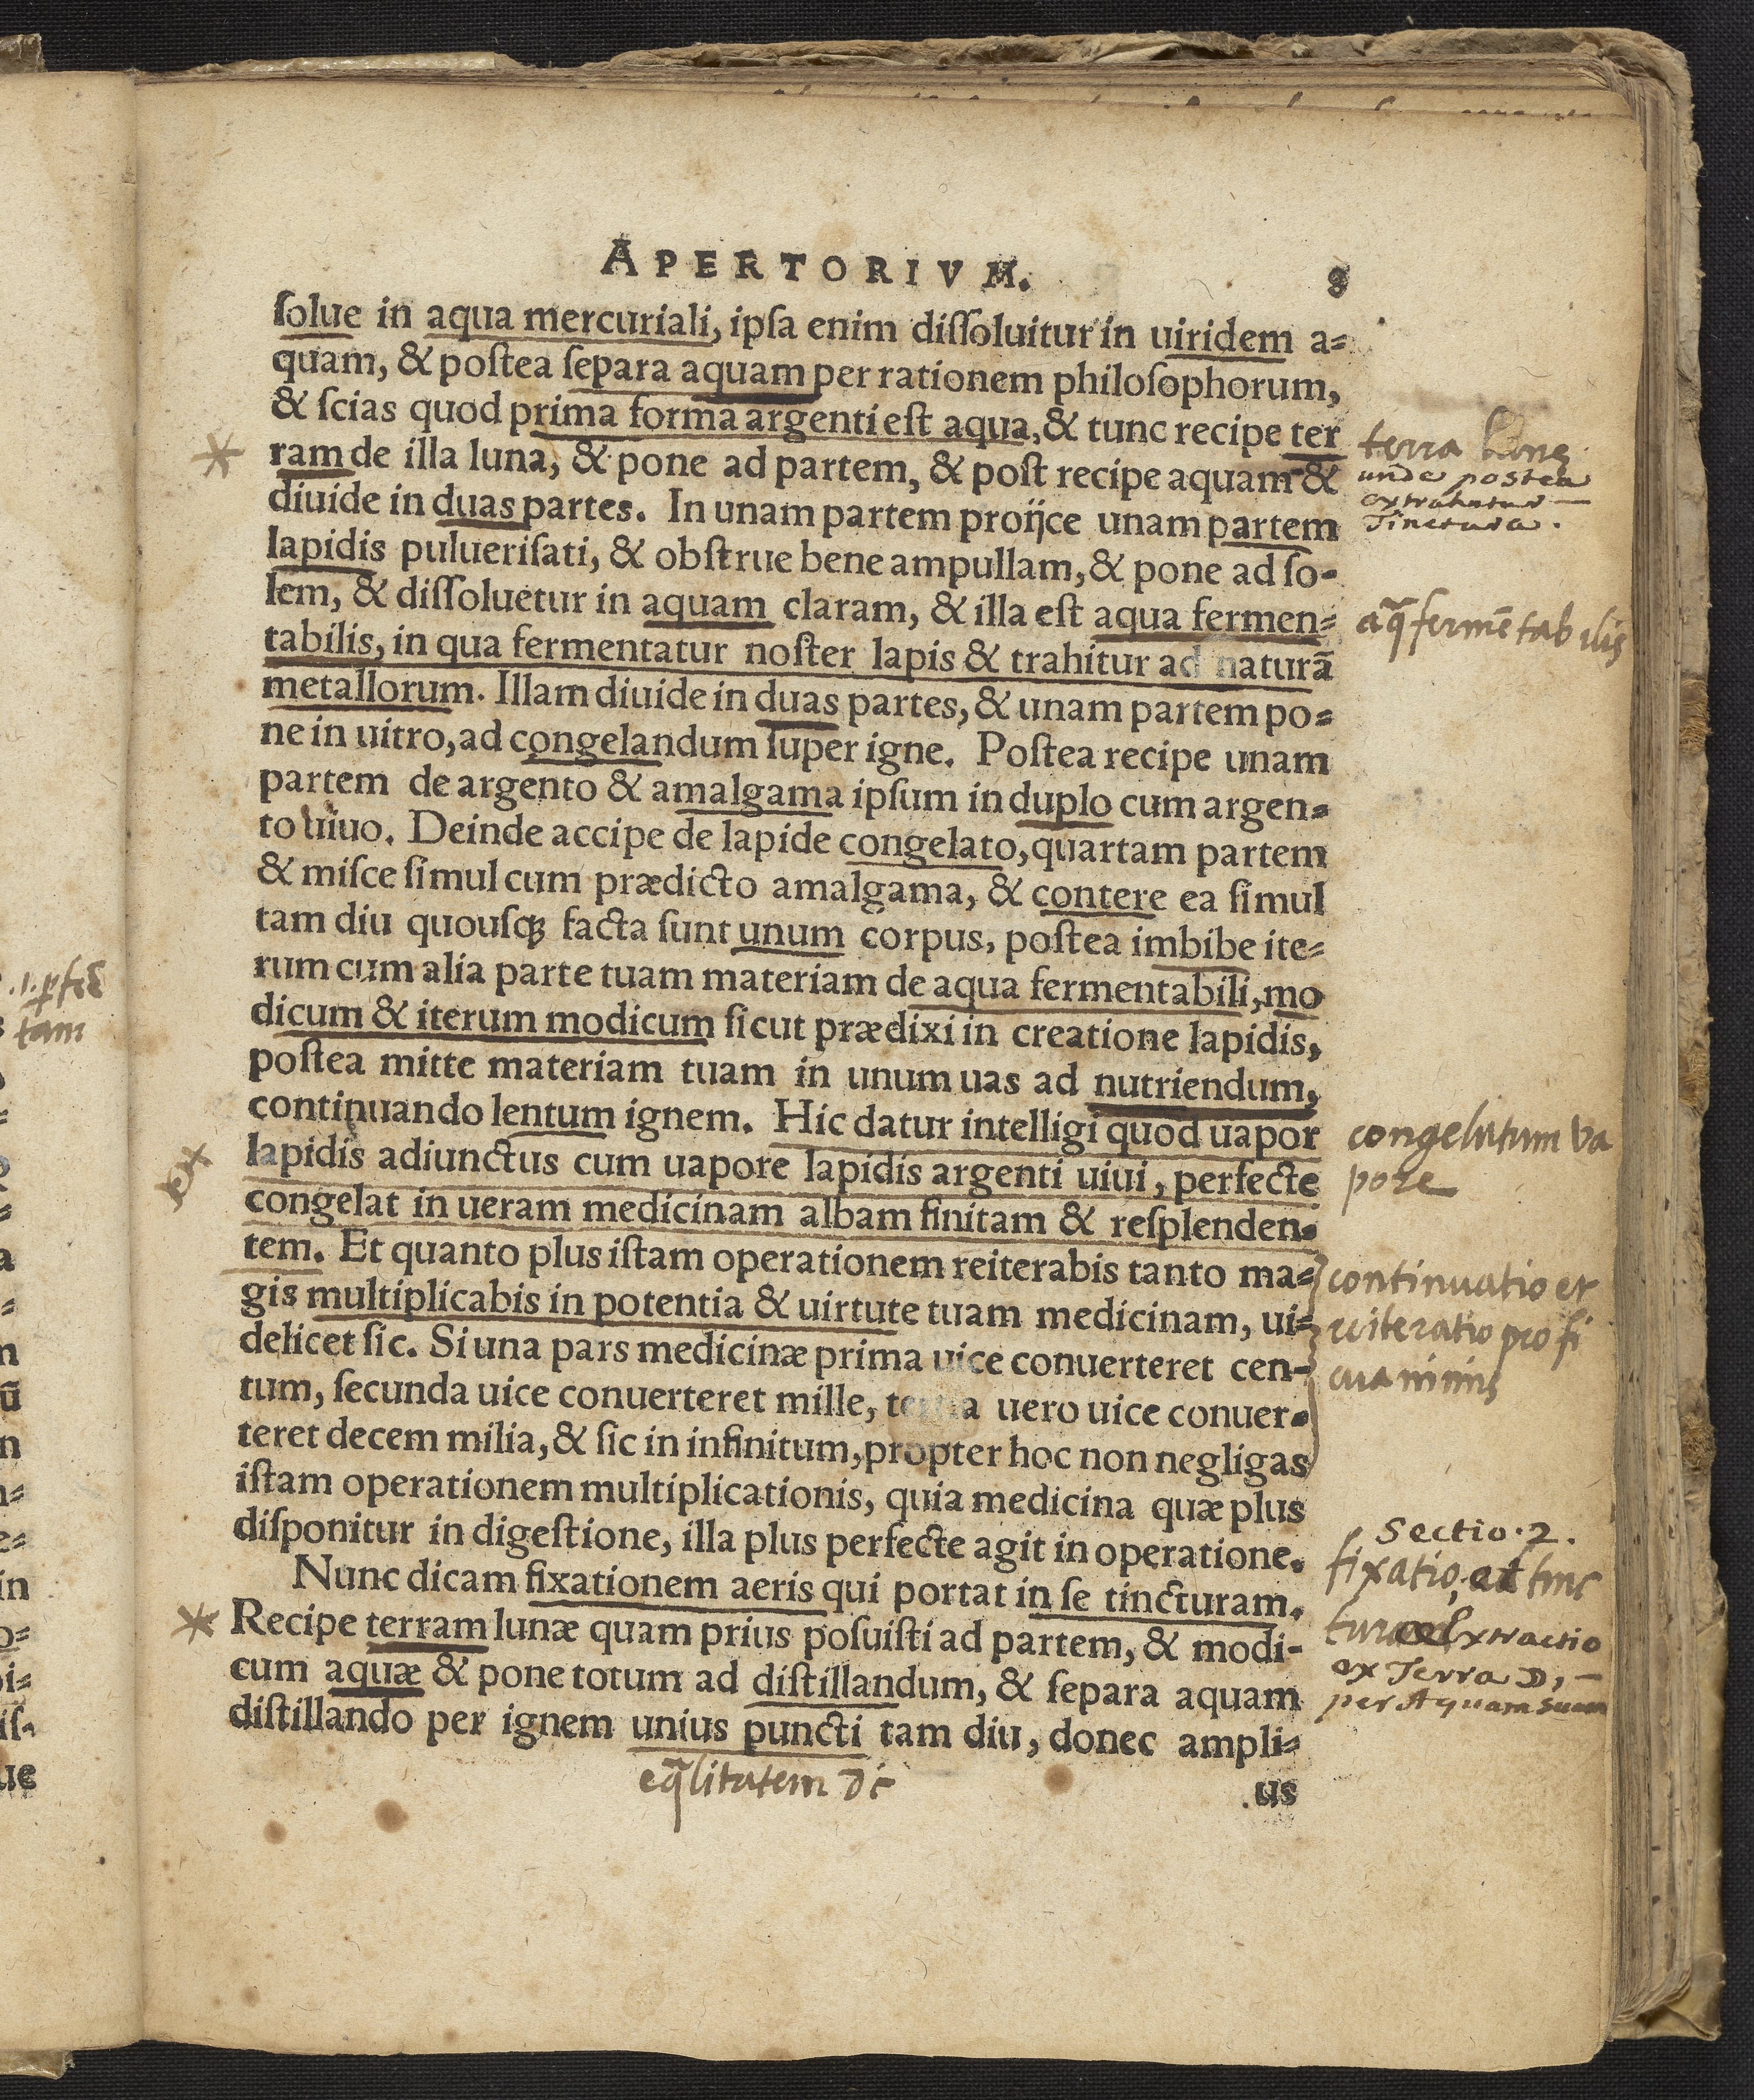 APERTORIVM. 9
ſolue in aqua mercuriali, ipſa enim diſſoluitur in uiridem a=
quam, & poſtea ſepara aquam per rationem philoſophorum,
& ſcias quod prima forma argenti eſt aqua, & tunc recipe ter
ram de illa luna, & pone ad partem, & poſt recipe aquam &
diuide in duas partes. In unam partem proijce unam partem
lapidis pulueriſati, & obſtrue bene ampullam, & pone ad ſo-
lem, & diſſoluetur in aquam claram, & illa eſt aqua fermen=
tabilis, in qua fermentatur noſter lapis & trahitur ad naturā
metallorum. Illam diuide in duas partes, & unam partem po=
ne in uitro, ad congelandum ſuper igne. Poſtea recipe unam
partem de argento & amalgama ipſum in duplo cum argen=
to uiuo. Deinde accipe de lapide congelato, quartam partem
& miſce ſimul cum prædicto amalgama, & contere ea ſimul
tam diu quouſq; facta ſunt unum corpus, poſtea imbibe ite=
rum cum alia parte tuam materiam de aqua fermentabili, mo
dicum & iterum modicum ſicut prædixi in creatione lapidis,
poſtea mitte materiam tuam in unum uas ad nutriendum,
continuando lentum ignem. Hic datur intelligi quod uapor
lapidis adiunctus cum uapore lapidis argenti uiui, perfecte
congelat in ueram medicinam albam finitam & reſplenden=
tem. Et quanto plus iſtam operationem reiterabis tanto ma=
gis multiplicabis in potentia & uirtute tuam medicinam, ui=
delicet ſic. Si una pars medicinæ prima uice conuerteret cen-
tum, ſecunda uice conuerteret mille, tertia uero uice conuer=
teret decem milia, & ſic in infinitum, propter hoc non negligas
iſtam operationem multiplicationis, quia medicina quæ plus
diſponitur in digeſtione, illa plus perfecte agit in operatione.
Nunc dicam fixationem aeris qui portat in ſe tincturam.
Recipe terram lunæ quam prius poſuiſti ad partem, & modi-
cum aquæ & pone totum ad diſtillandum, & ſepara aquam
diſtillando per ignem unius puncti tam diu, donec ampli=
us
eq̃litatem dc
terra lune
unde postea
extrahatur
Tinctura.
aq̃ fermētabilis
congelatum va
pore
continuatio et
reiteratio profi
cua nimis
Sectio. 2.
fixatio, et tinc
turae Extractio
ex Terra ☽,
per Aquam suam
tam